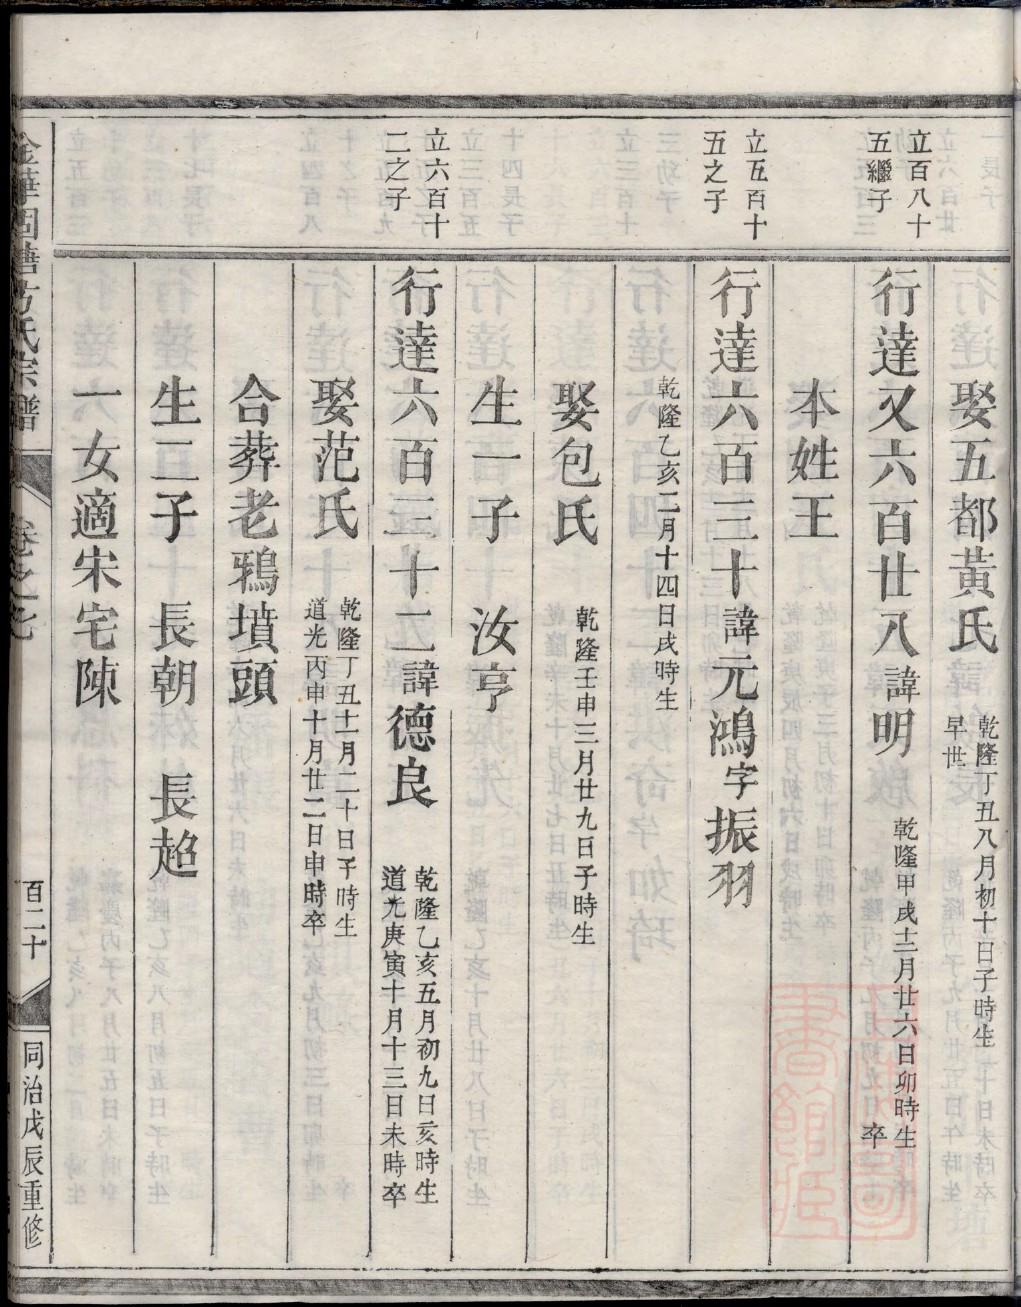 娶五都黃氏 乾隆丁丑八月初十日子時生
早世
立百八十
五繼子
行達又六百廿八諱明 乾隆甲戌十二月廿六日卯時生
卒
本姓王
立五百十
五之子
行達六百三十諱元鴻字振羽
乾隆乙亥二月十四日戌時生
娶包氏 乾隆壬申三月廿九日子時生
生一子 汝亨
立六百十
二之子
行達六百三十二諱德良 乾隆乙亥五月初九日亥時生
道光庚寅十月十三日未時卒
娶范氏 乾隆丁丑十一月二十日子時生
道光丙申十月廿二日申時卒
合葬老鴉墳頭
生二子 長朝 長超
一女適宋宅陳
金華國塘方氏宗譜 卷之七 百二十 同治戊辰重修